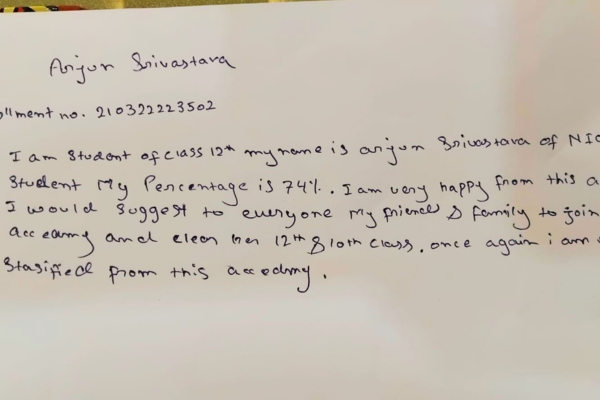 Arjun Srivastava
ollment no. 210322223502
I am Student of class 12th my name is arjun Srivastava of NIO
Student My Percentage is 74%. I am very happy from this a
I would Suggest to everyone My friend & family to join
accedamy and clear her 12th & 10th class. once again i am
Stasified from this accedmy.